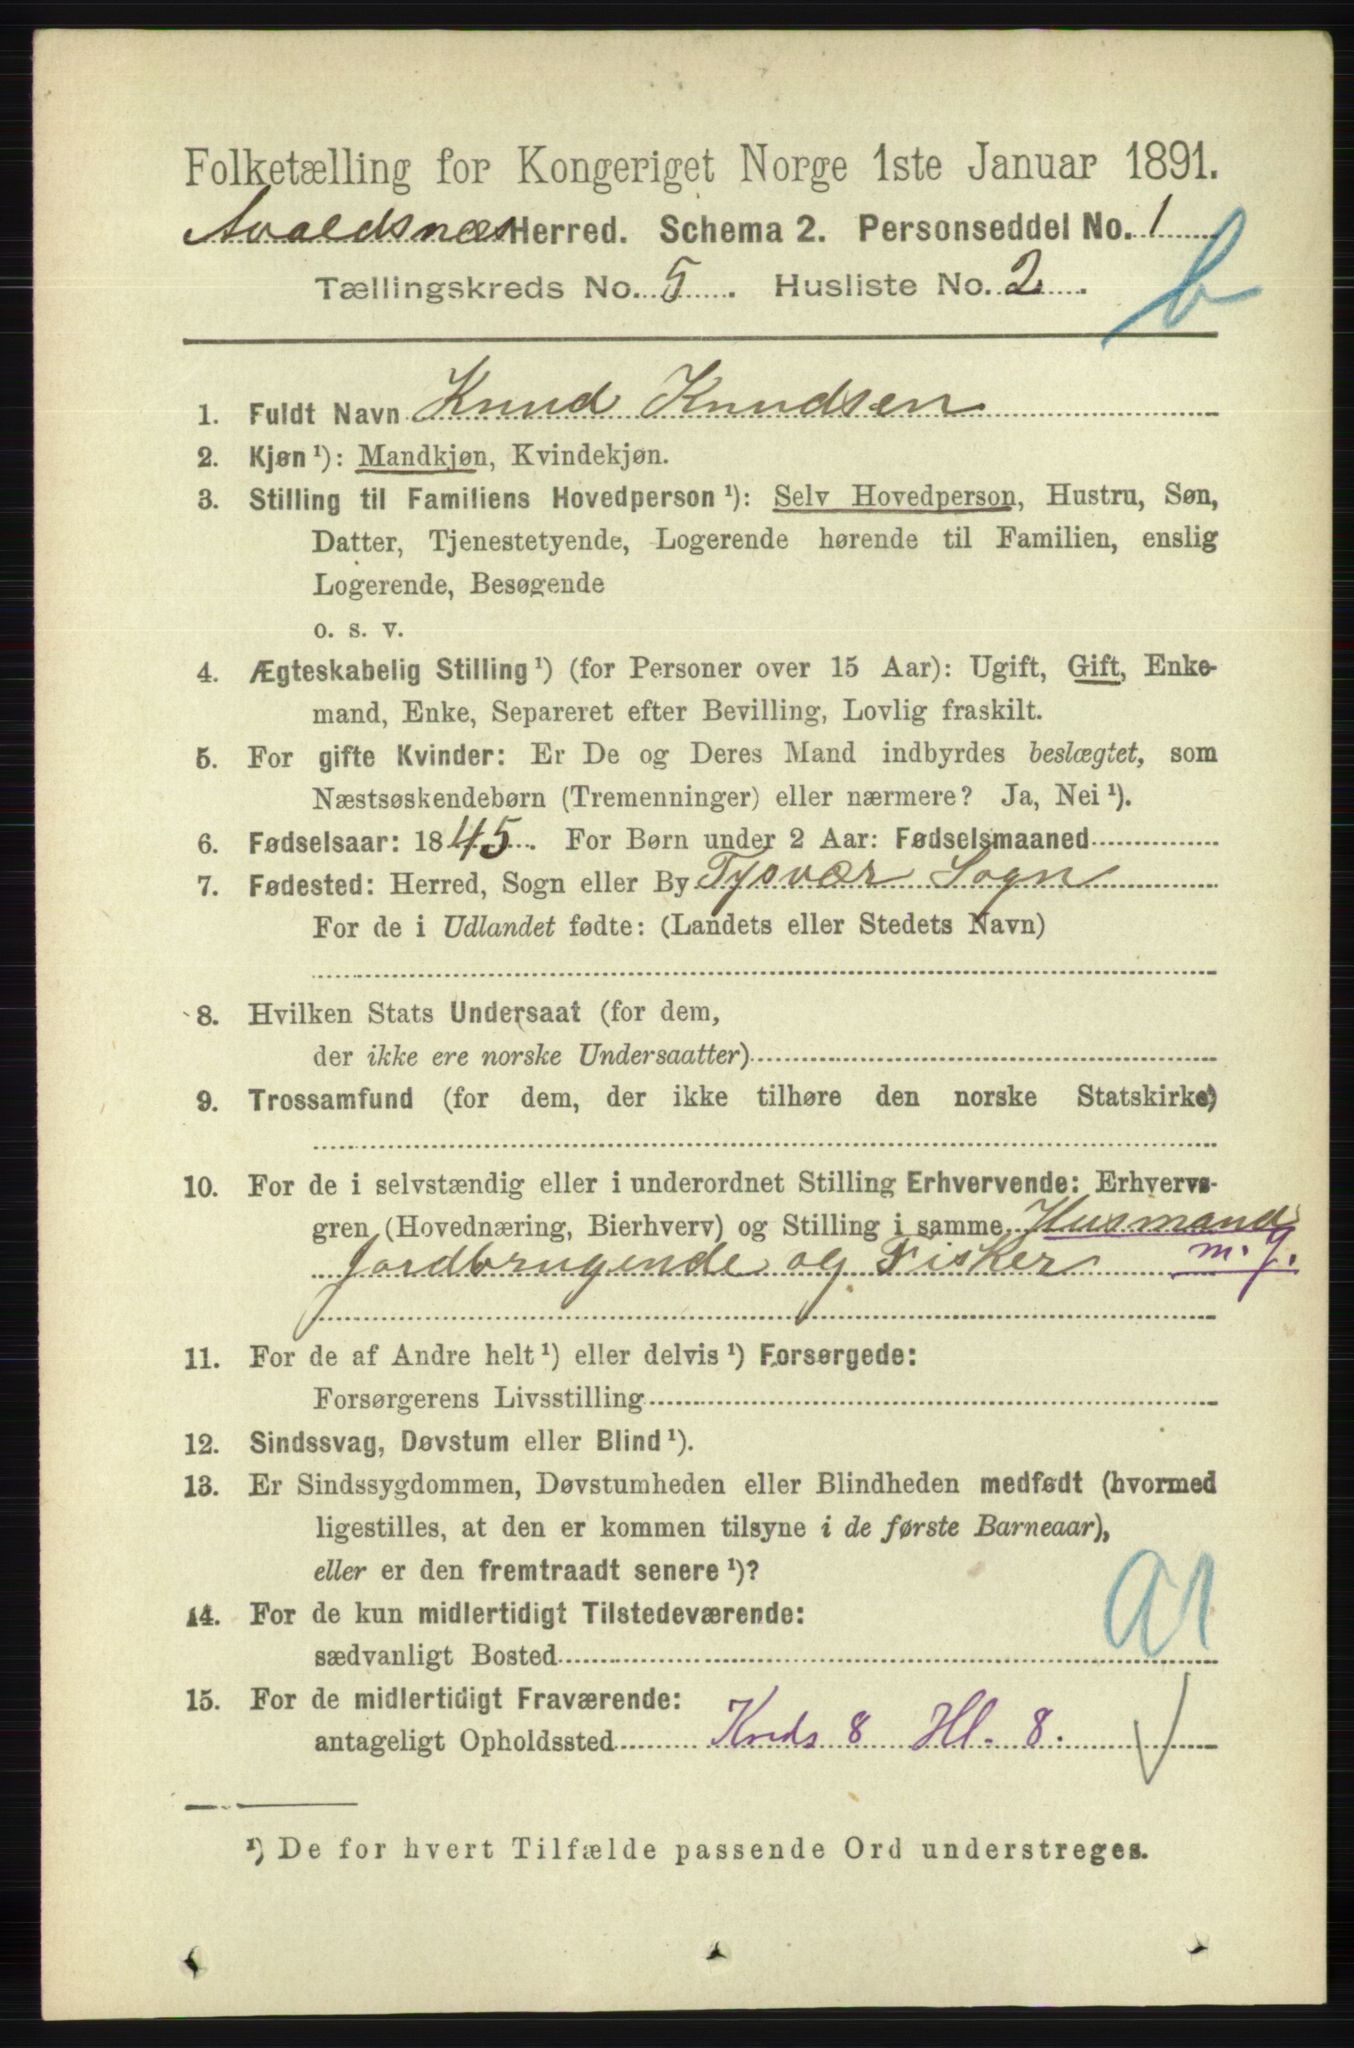 Folketælling for Kongeriget Norge 1ste Januar 1891.
Avaldsnæs Herred. Schema 2. Personseddel No. 1
b
Tællingskreds No. 5. Husliste No. 2.
1. Fuldt Navn Knud Knudsen
2. Kjøn ¹): Mandkjøn, Kvindekjøn.
3. Stilling til Familiens Hovedperson ¹): Selv Hovedperson, Hustru, Søn,
Datter, Tjenestetyende, Logerende hørende til Familien, enslig
Logerende, Besøgende
o. s. v.
4. Ægteskabelig Stilling ¹) (for Personer over 15 Aar): Ugift, Gift, Enke-
mand, Enke, Separeret efter Bevilling, Lovlig fraskilt.
5. For gifte Kvinder: Er De og Deres Mand indbyrdes beslægtet, som
Næstsøskendebørn (Tremenninger) eller nærmere? Ja, Nei ¹).
6. Fødselsaar: 1845. For Børn under 2 Aar: Fødselsmaaned
7. Fødested: Herred, Sogn eller By Tysvær Sogn
For de i Udlandet fødte: (Landets eller Stedets Navn)
8. Hvilken Stats Undersaat (for dem,
der ikke ere norske Undersaatter)
9. Trossamfund (for dem, der ikke tilhøre den norske Statskirke)
10. For de i selvstændig eller i underordnet Stilling Erhvervende: Erhvervs-
gren (Hovednæring, Bierhverv) og Stilling i samme Husmand
m. j.
Jordbrugende og Fisker
11. For de af Andre helt ¹) eller delvis ¹) Forsørgede:
Forsørgerens Livsstilling
12. Sindssvag, Døvstum eller Blind ¹).
13. Er Sindssygdommen, Døvstumheden eller Blindheden medfødt (hvormed
ligestilles, at den er kommen tilsyne i de første Barneaar),
eller er den fremtraadt senere ¹)?
14. For de kun midlertidigt Tilstedeværende:
sædvanligt Bosted
15. For de midlertidigt Fraværende:
antageligt Opholdssted Kreds 8 Hl. 8.
¹) De for hvert Tilfælde passende Ord understreges.